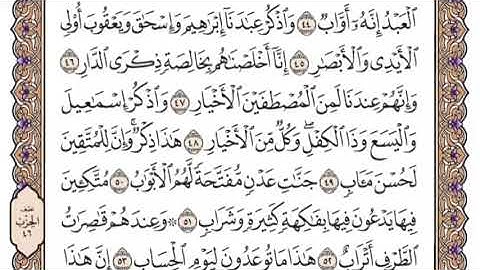 ٱلْعَبْدُ إِنَّهُۥٓ أَوَّابٌ ٤٤ وَٱذْكُرْ عِبَٰدَنَآ إِبْرَٰهِيمَ وَإِسْحَٰقَ وَيَعْقُوبَ أُو۟لِى
ٱلْأَيْدِى وَٱلْأَبْصَٰرِ ٤٥ إِنَّآ أَخْلَصْنَٰهُم بِخَالِصَةٍ ذِكْرَى ٱلدَّارِ ٤٦
وَإِنَّهُمْ عِندَنَا لَمِنَ ٱلْمُصْطَفَيْنَ ٱلْأَخْيَارِ ٤٧ وَٱذْكُرْ إِسْمَٰعِيلَ
وَٱلْيَسَعَ وَذَا ٱلْكِفْلِ ۖ وَكُلٌّ مِّنَ ٱلْأَخْيَارِ ٤٨ هَٰذَا ذِكْرٌ ۚ وَإِنَّ لِلْمُتَّقِينَ
لَحُسْنَ مَـَٔابٍ ٤٩ جَنَّٰتِ عَدْنٍ مُّفَتَّحَةً لَّهُمُ ٱلْأَبْوَٰبُ ٥٠ مُتَّكِـِٔينَ
فِيهَا يَدْعُونَ فِيهَا بِفَٰكِهَةٍ كَثِيرَةٍ وَشَرَابٍ ٥١ ۞ وَعِندَهُمْ قَٰصِرَٰتُ
ٱلطَّرْفِ أَتْرَابٌ ٥٢ هَٰذَا مَا تُوعَدُونَ لِيَوْمِ ٱلْحِسَابِ ٥٣ إِنَّ هَٰذَا
نصف
الحزب
٤٦